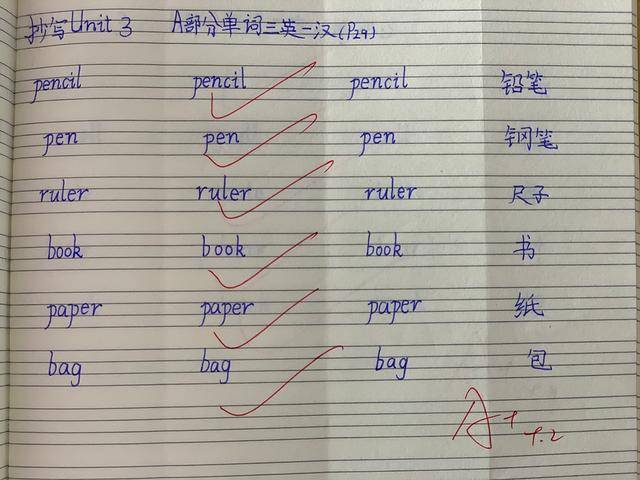 抄写Unit 3 A部分单词三英一汉(P29)
pencil pencil pencil 铅笔
pen pen pen 钢笔
ruler ruler ruler 尺子
book book book 书
paper paper paper 纸
bag bag bag 包
A+